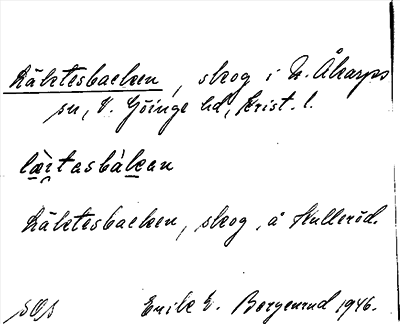 Läktesbacken, skog i N. Åkarps
sn, V. Göinge hd, Krist. l.
læ̀i̯tasbàkan
Läktesbacken, skog, å Hulleröd.
Erik E. Borgenrud 1946.